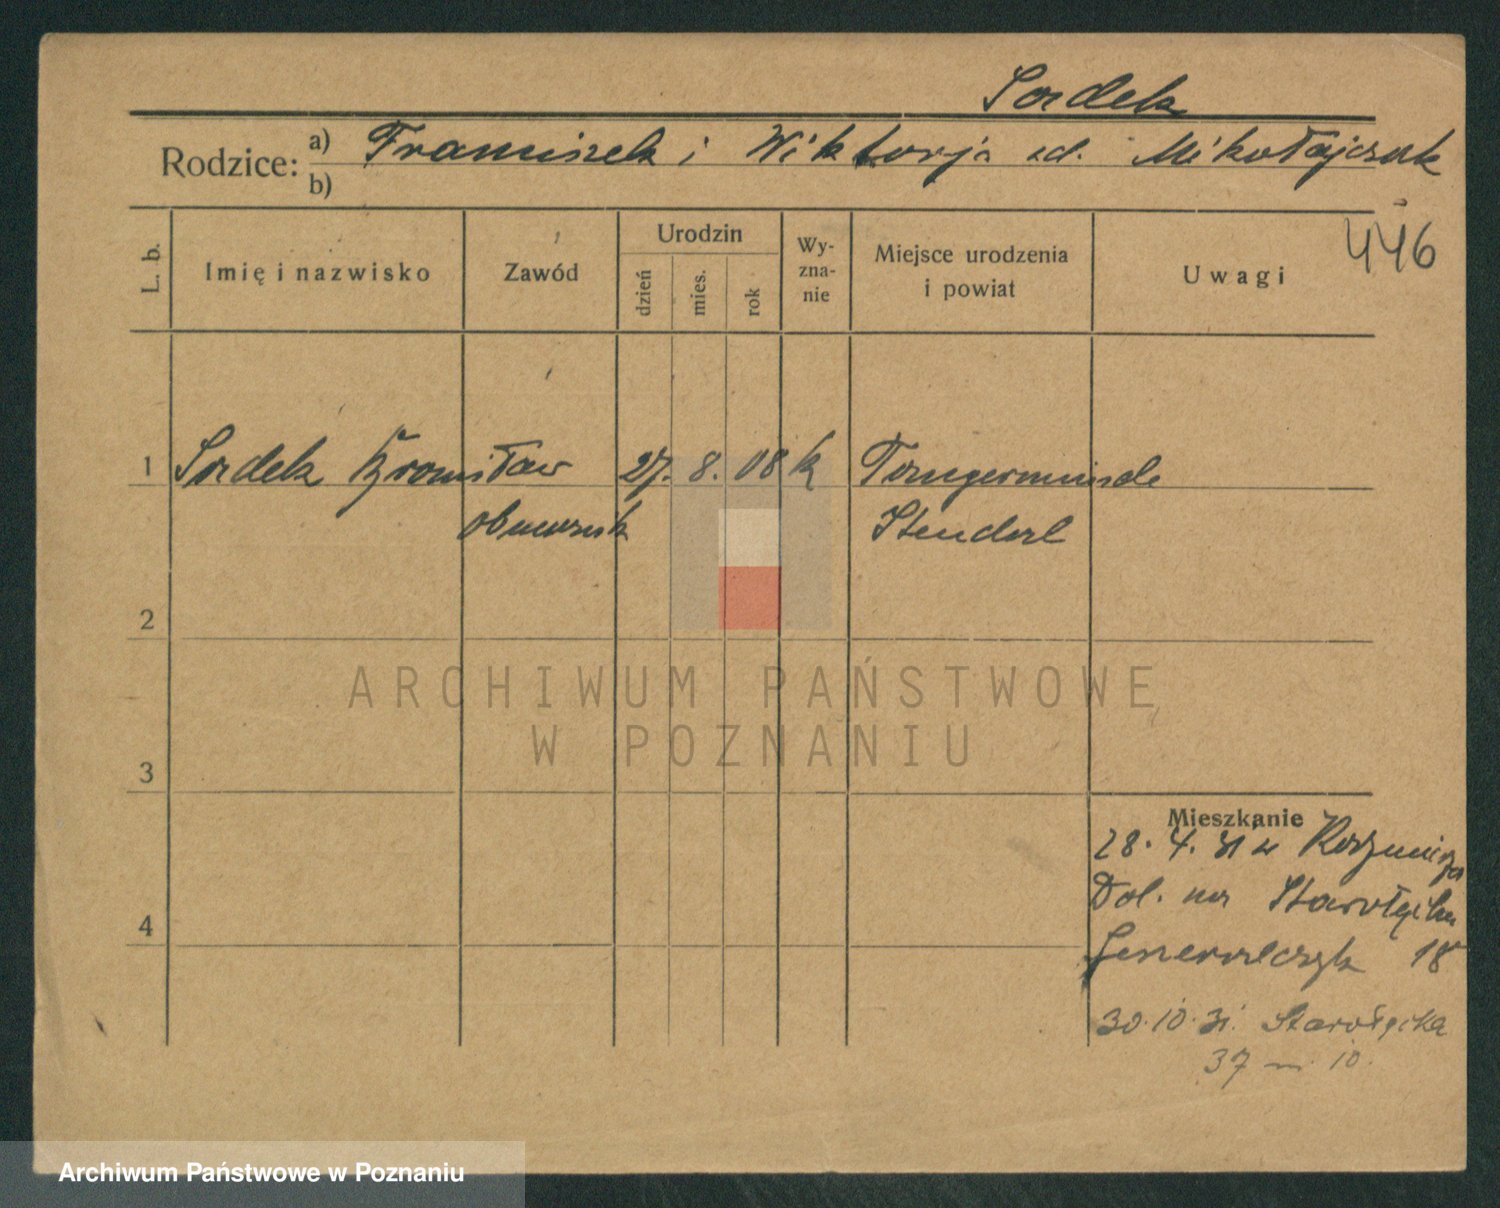 Sordek
Rodzice: a) Franciszek i Wiktorja zd. Mikołajczak
b)
446
L. b. Imię i nazwisko Zawód Urodzin dzień mies. rok Wy-zna-nie Miejsce urodzenia i powiat Uwagi
1 Sordek Bronisław 27. 8. 08 k Tangermünde
Stendal
2
ARCHIWUM PAŃSTWOWE
W POZNANIU
3
Mieszkanie
28. 4. 31 z
4 Dol. na Starołęcka
18
30.10.31. Starołęcka
37 m. 10.
Archiwum Państwowe w Poznaniu